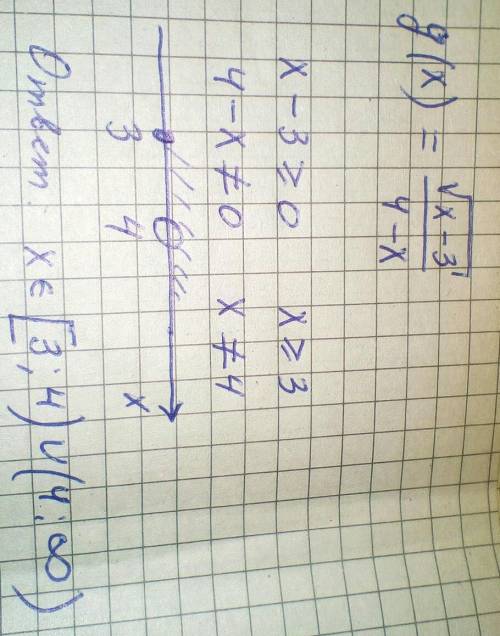 g(x) = √(x-3) / 4-x
x-3≥0 x≥3
4-x≠0 x≠4
3 4 x
Ответ: x∈[3;4)∪(4;∞)